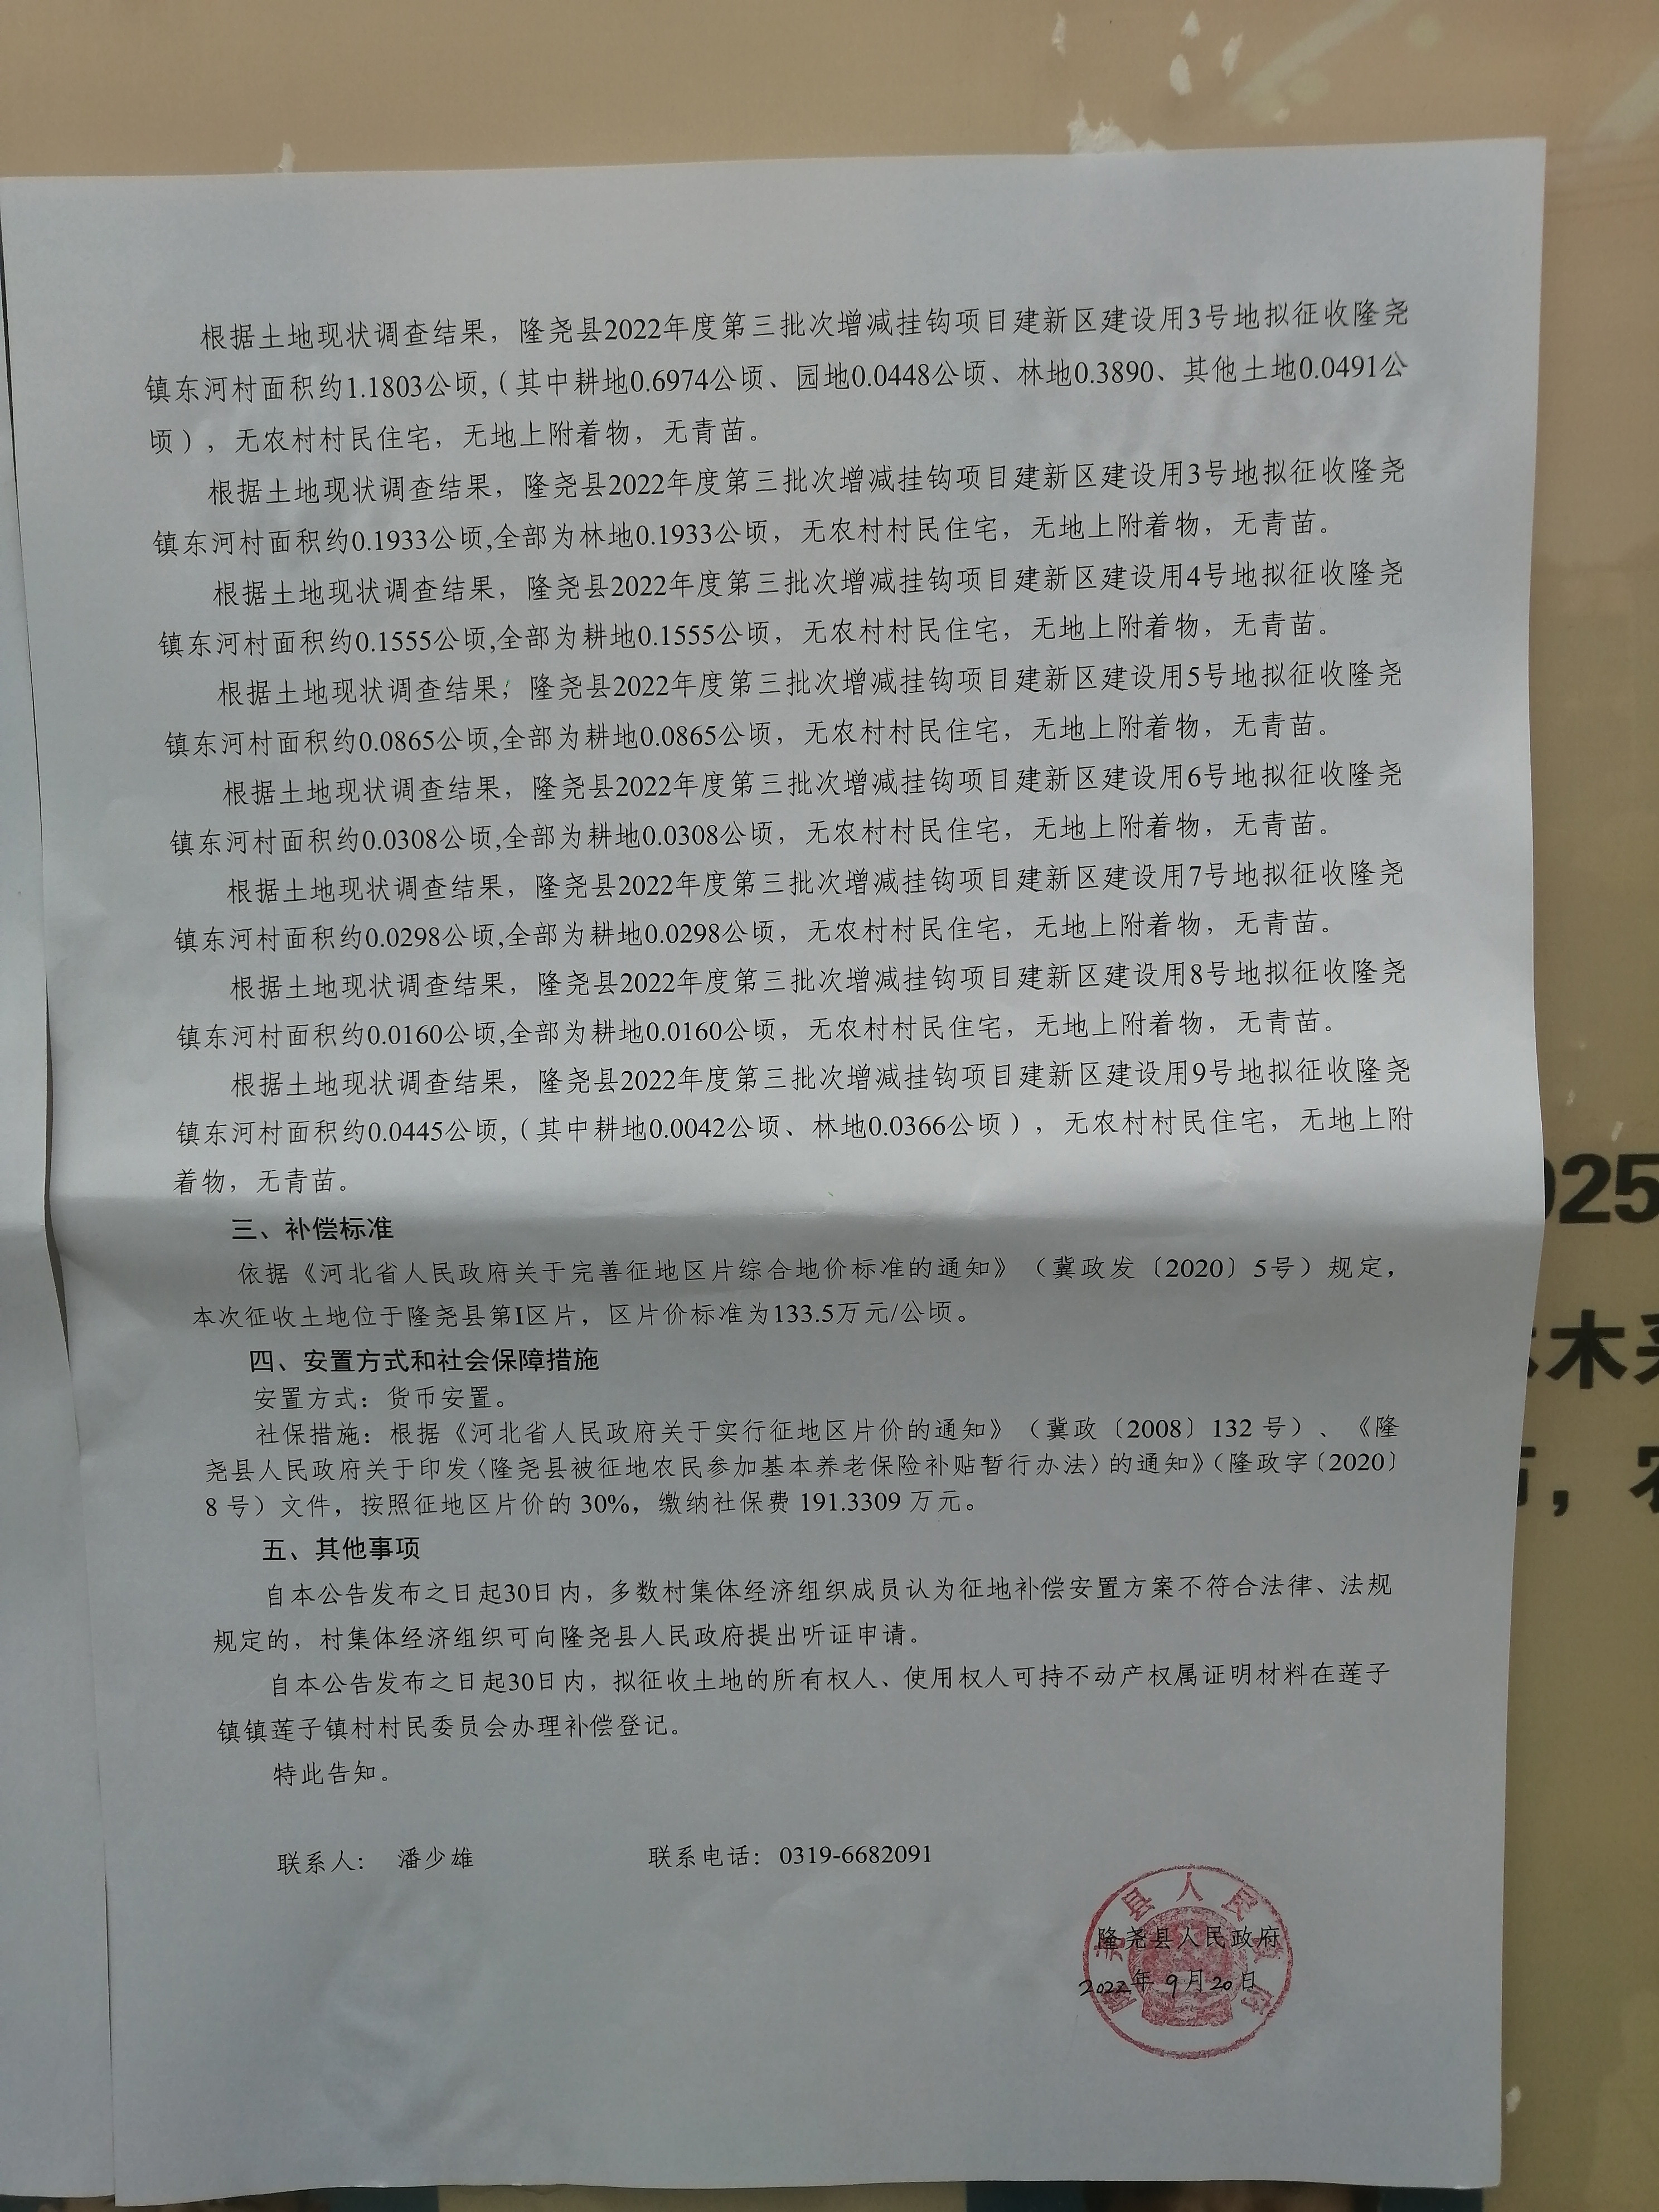 根据土地现状调查结果，隆尧县2022年度第三批次增减挂钩项目建新区建设用3号地拟征收隆尧
镇东河村面积约1.1803公顷,（其中耕地0.6974公顷、园地0.0448公顷、林地0.3890、其他土地0.0491公
顷），无农村村民住宅，无地上附着物，无青苗。
根据土地现状调查结果，隆尧县2022年度第三批次增减挂钩项目建新区建设用3号地拟征收隆尧
镇东河村面积约0.1933公顷,全部为林地0.1933公顷，无农村村民住宅，无地上附着物，无青苗。
根据土地现状调查结果，隆尧县2022年度第三批次增减挂钩项目建新区建设用4号地拟征收隆尧
镇东河村面积约0.1555公顷,全部为耕地0.1555公顷，无农村村民住宅，无地上附着物，无青苗。
根据土地现状调查结果，隆尧县2022年度第三批次增减挂钩项目建新区建设用5号地拟征收隆尧
镇东河村面积约0.0865公顷,全部为耕地0.0865公顷，无农村村民住宅，无地上附着物，无青苗。
根据土地现状调查结果，隆尧县2022年度第三批次增减挂钩项目建新区建设用6号地拟征收隆尧
镇东河村面积约0.0308公顷,全部为耕地0.0308公顷，无农村村民住宅，无地上附着物，无青苗。
根据土地现状调查结果，隆尧县2022年度第三批次增减挂钩项目建新区建设用7号地拟征收隆尧
镇东河村面积约0.0298公顷,全部为耕地0.0298公顷，无农村村民住宅，无地上附着物，无青苗。
根据土地现状调查结果，隆尧县2022年度第三批次增减挂钩项目建新区建设用8号地拟征收隆尧
镇东河村面积约0.0160公顷,全部为耕地0.0160公顷，无农村村民住宅，无地上附着物，无青苗。
根据土地现状调查结果，隆尧县2022年度第三批次增减挂钩项目建新区建设用9号地拟征收隆尧
镇东河村面积约0.0445公顷,（其中耕地0.0042公顷、林地0.0366公顷），无农村村民住宅，无地上附
着物，无青苗。
三、补偿标准
依据《河北省人民政府关于完善征地区片综合地价标准的通知》（冀政发〔2020〕5号）规定，
本次征收土地位于隆尧县第I区片，区片价标准为133.5万元/公顷。
四、安置方式和社会保障措施
安置方式：货币安置。
社保措施：根据《河北省人民政府关于实行征地区片价的通知》（冀政〔2008〕132 号）、《隆
尧县人民政府关于印发〈隆尧县被征地农民参加基本养老保险补贴暂行办法〉的通知》（隆政字〔2020〕
8 号）文件，按照征地区片价的 30%，缴纳社保费 191.3309 万元。
五、其他事项
自本公告发布之日起30日内，多数村集体经济组织成员认为征地补偿安置方案不符合法律、法规
规定的，村集体经济组织可向隆尧县人民政府提出听证申请。
自本公告发布之日起30日内，拟征收土地的所有权人、使用权人可持不动产权属证明材料在莲子
镇镇莲子镇村村民委员会办理补偿登记。
特此告知。
联系人： 潘少雄 联系电话：0319-6682091
隆尧县人民政府
2022年 9月20日
隆尧县人民政府
025
木
，